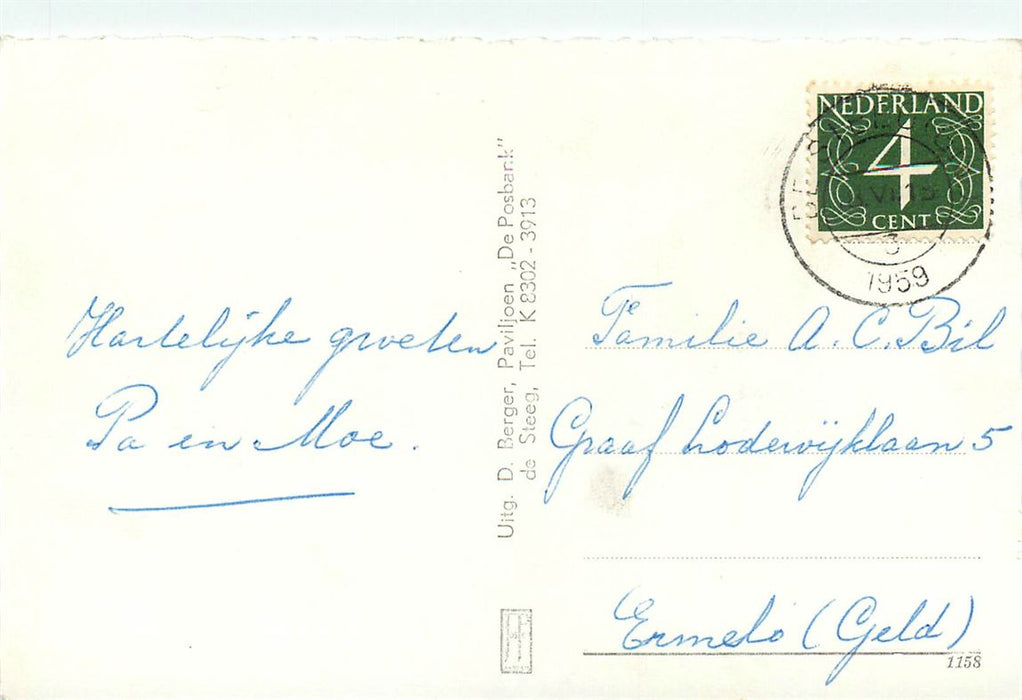 Hartelijke groeten
Pa en Moe.
Uitg. D. Berger, Paviljoen „De Posbank"
de Steeg, Tel. K 8302 - 3913
NEDERLAND
4
CENT
3
1959
Familie A. C. Bil
Graaf Lodewijklaan 5
Ermelo (Geld)
1158